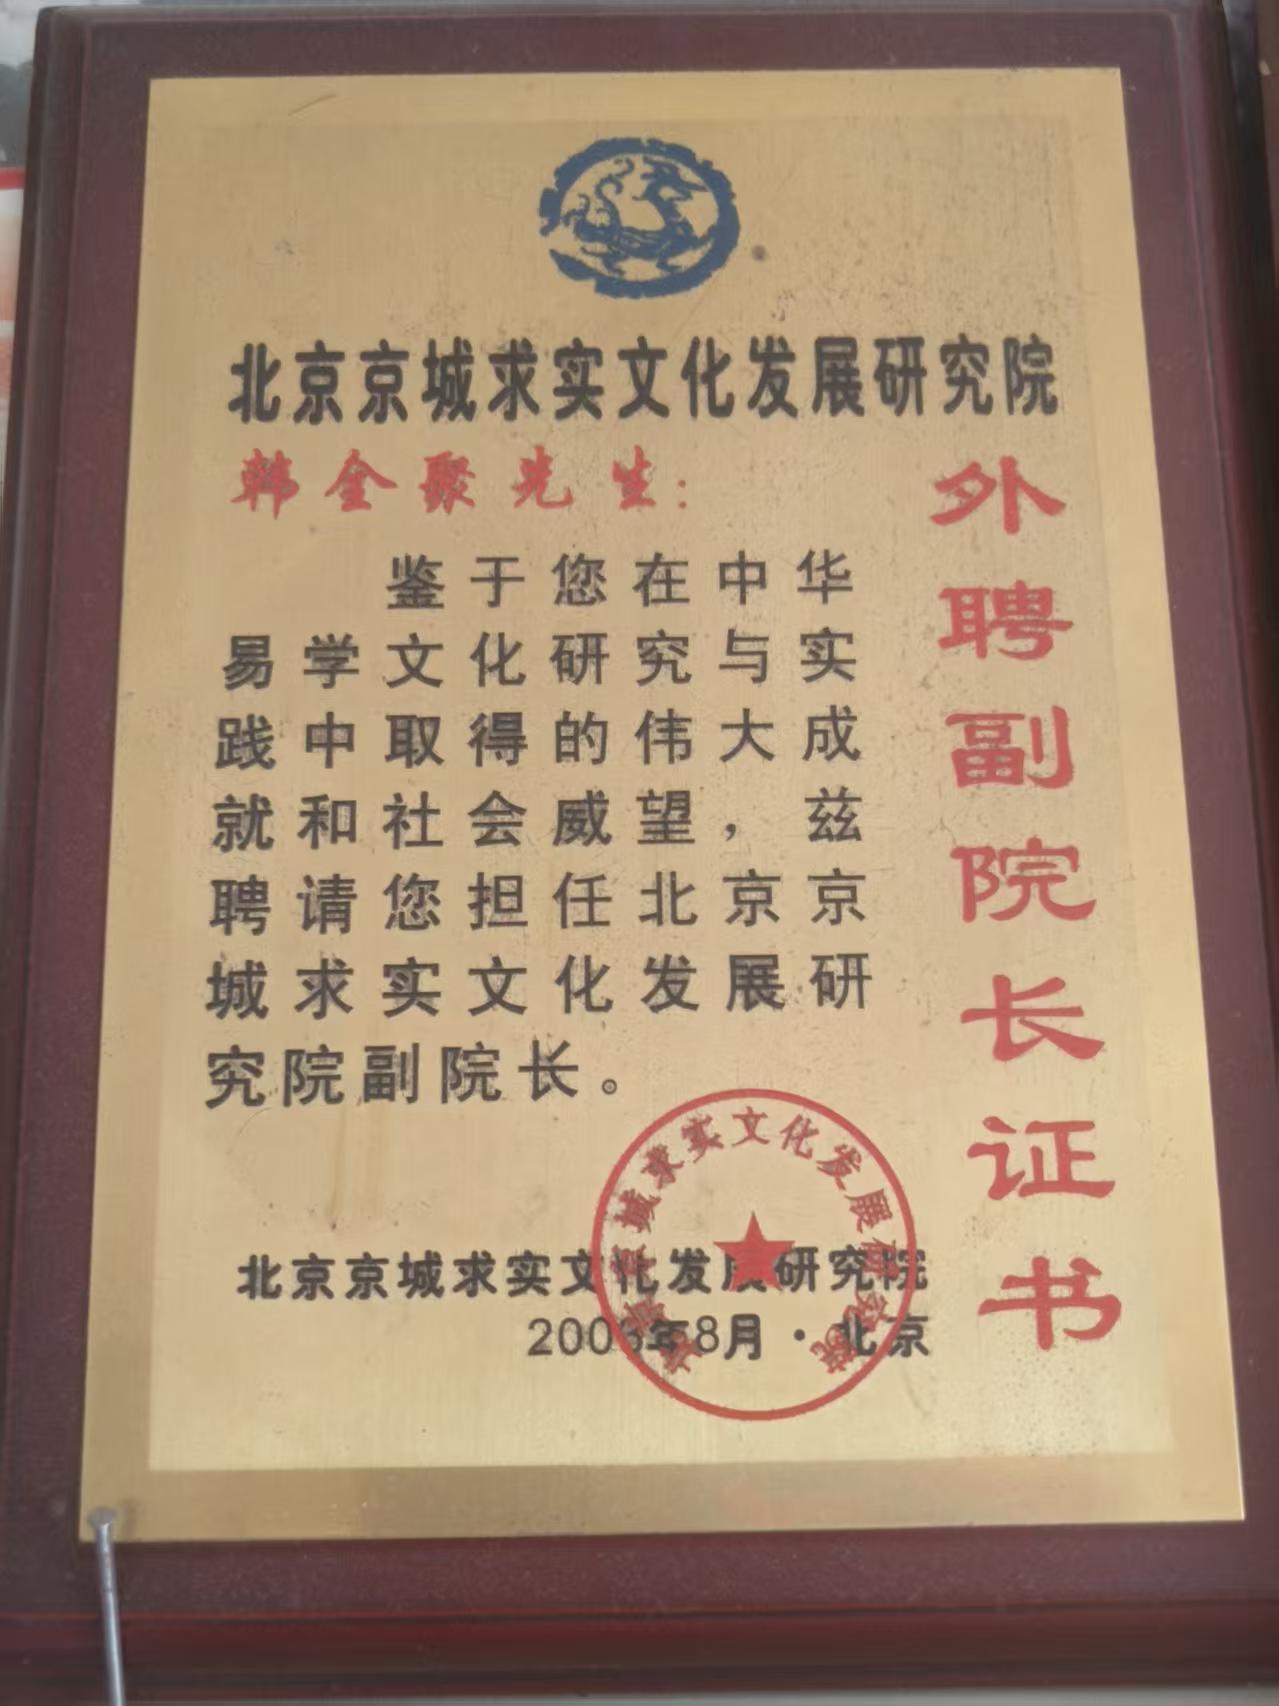 北京京城求实文化发展研究院
韩全聚先生:
鉴于您在中华
易学文化研究与实
践中取得的伟大成
就和社会威望,兹
聘请您担任北京京
城求实文化发展研
究院副院长。
外聘副院长证书
北京京城求实文化发展研究院
年8月·北京
北京京城求实文化发展研究院